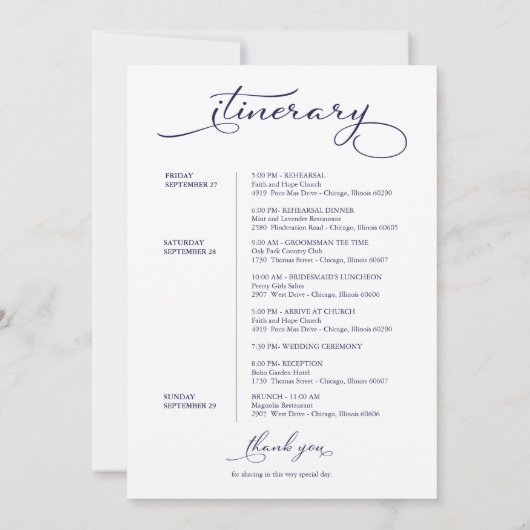 itinerary
FRIDAY
SEPTEMBER 27
5:00 PM - REHEARSAL
Faith and Hope Church
4919 Poco Mas Drive - Chicago, Illinois 60290
6:00 PM- REHEARSAL DINNER
Mint and Lavender Restaurant
2580 Flinderation Road - Chicago, Illinois 60605
SATURDAY
SEPTEMBER 28
9:00 AM - GROOMSMAN TEE TIME
Oak Park Country Club
1730 Thomas Street - Chicago, Illinois 60607
10:00 AM - BRIDESMAID'S LUNCHEON
Pretty Girls Salon
2907 West Drive - Chicago, Illinois 60606
5:00 PM - ARRIVE AT CHURCH
Faith and Hope Church
4919 Poco Mas Drive - Chicago, Illinois 60290
7:30 PM- WEDDING CEREMONY
8:00 PM- RECEPTION
Boho Garden Hotel
1730 Thomas Street - Chicago, Illinois 60607
SUNDAY
SEPTEMBER 29
BRUNCH - 11:00 AM
Magnolia Restaurant
2907 West Drive - Chicago, Illinois 60606
thank you
for sharing in this very special day.